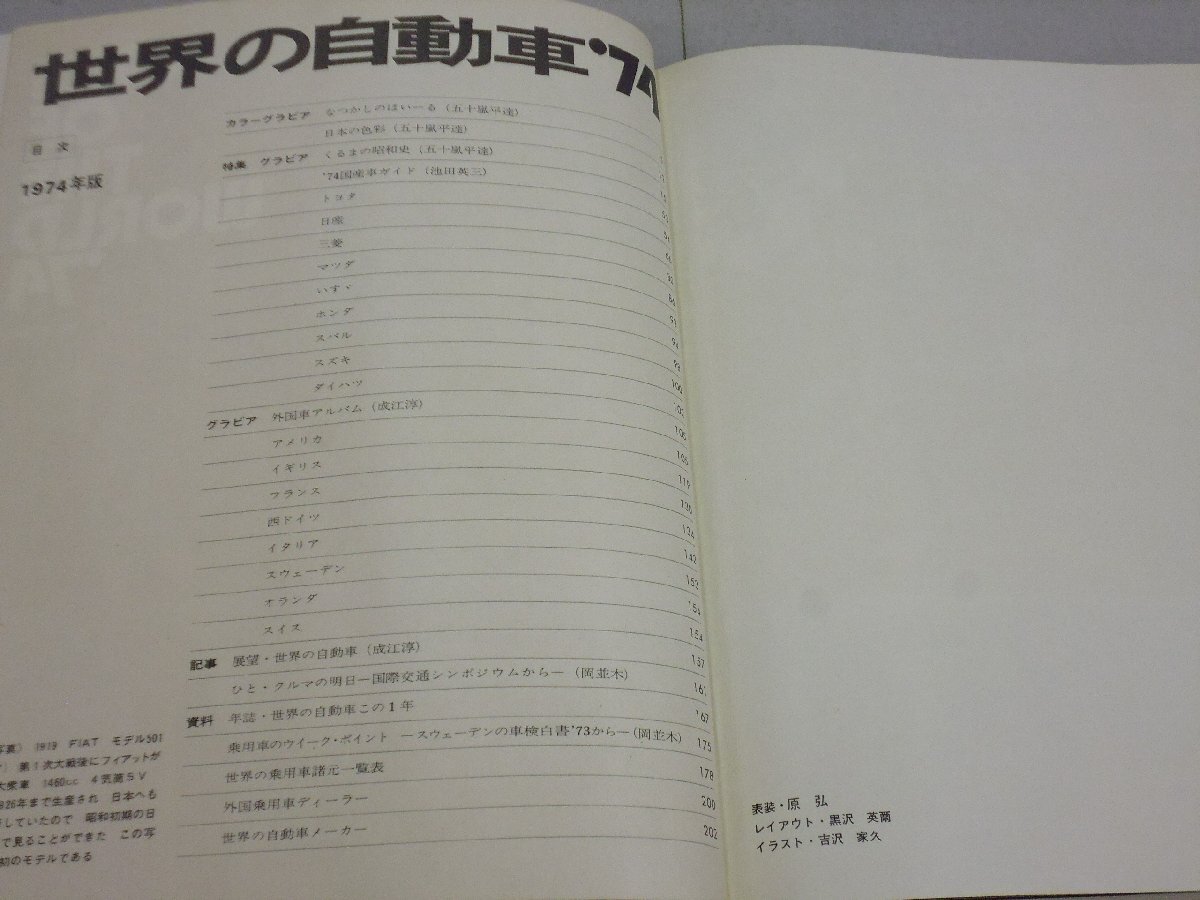 世界の自動車'74
目次
1974年版
カラーグラビア なつかしのほいーる(五十嵐平達)
日本の色彩(五十嵐平達)
特集 グラビア くるまの昭和史(五十嵐平達)
'74国産車ガイド(池田英三)
トヨタ
日産
三菱
マツダ
いすゞ
ホンダ
スバル
スズキ
ダイハツ
グラビア 外国車アルバム(成江淳)
アメリカ
イギリス
フランス
西ドイツ
イタリア
スウェーデン
オランダ
スイス
記事 展望・世界の自動車(成江淳)
ひと・クルマの明日―国際交通シンポジウムから―(岡並木)
資料 年誌・世界の自動車この1年
乗用車のウイーク・ポイント ―スウェーデンの車検白書'73から―(岡並木) 175
世界の乗用車諸元一覧表 178
外国乗用車ディーラー 200
世界の自動車メーカー 202
1919 FIAT モデル501
第1次大戦後にフィアットが
大衆車 1460cc 4気筒SV
926年まで生産され 日本へも
していたので 昭和初期の日
で見ることができた この写
初のモデルである
表装・原 弘
レイアウト・黒沢 英爾
イラスト・吉沢 家久